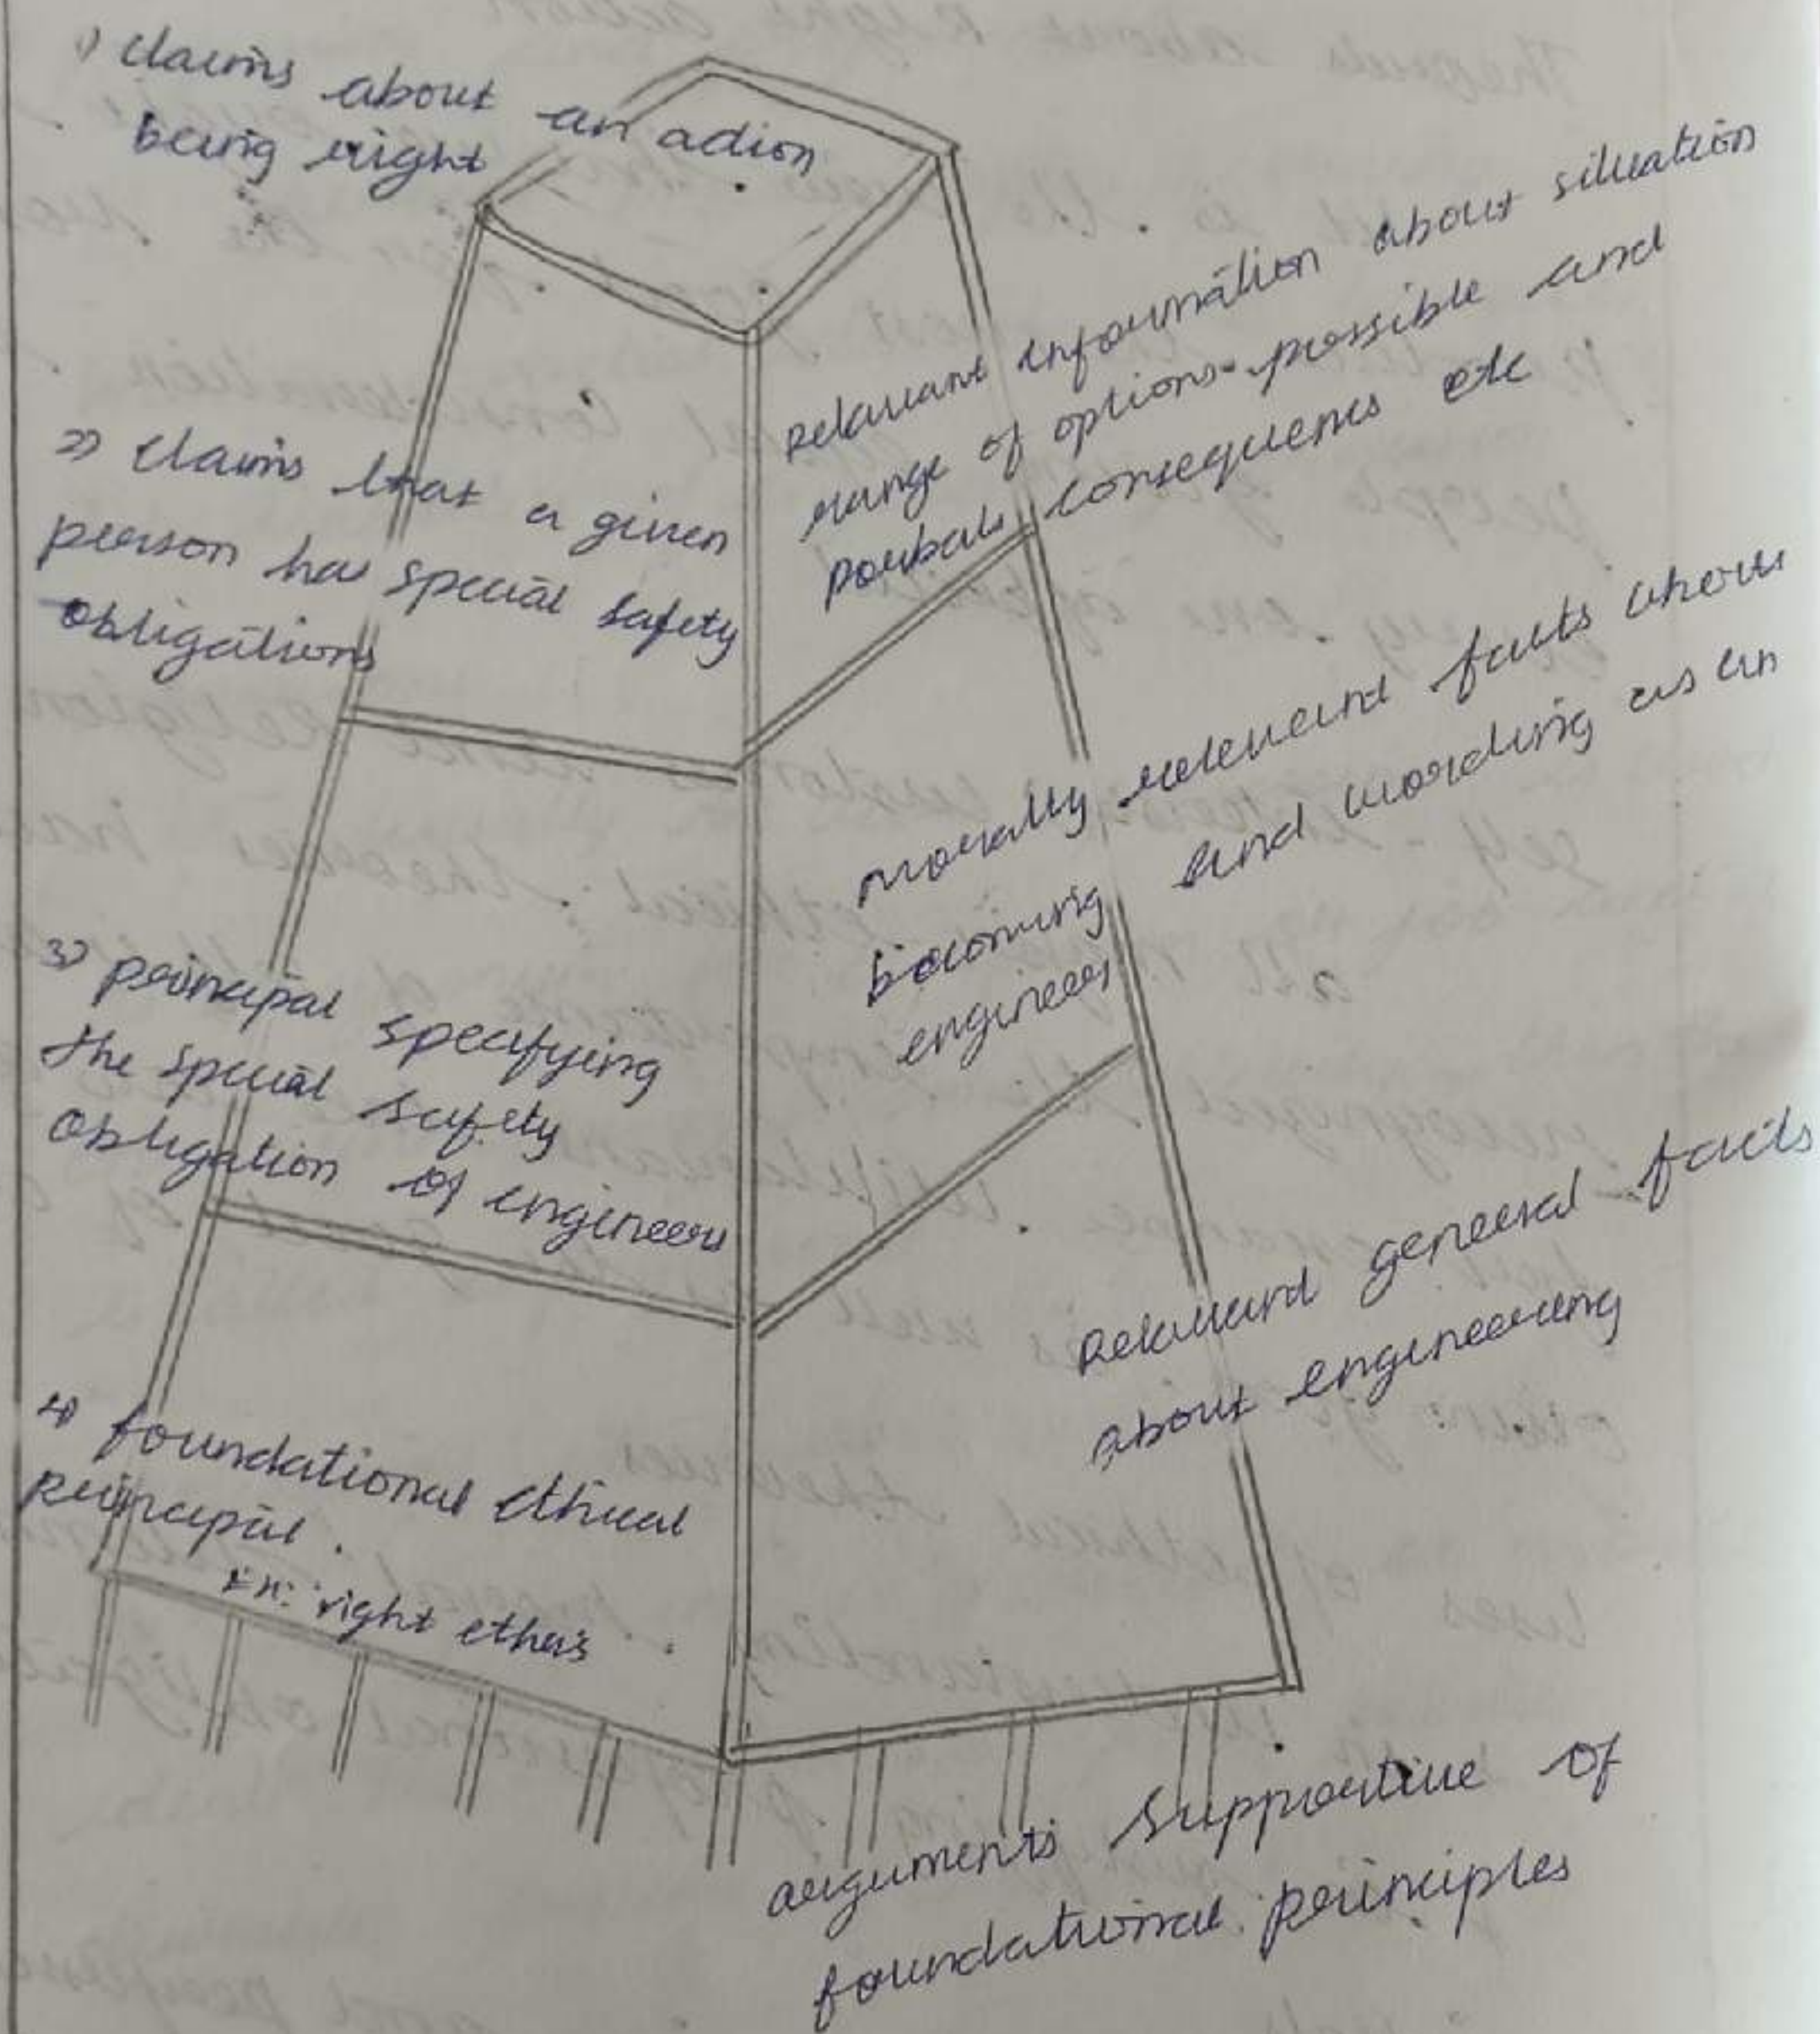 1) Claims about an action
being right
2) Claims that a given
person has special safety
obligations
3) principal specifying
the special safety
obligation of engineers
4) foundational ethical
principal.
Ex: right ethics
Relavant information about situation
range of options possible and
consequences etc
morally relevant facts
becoming and wording as an
engineer
Relavant general facts
about engineering
arguments supportive of
foundational principles